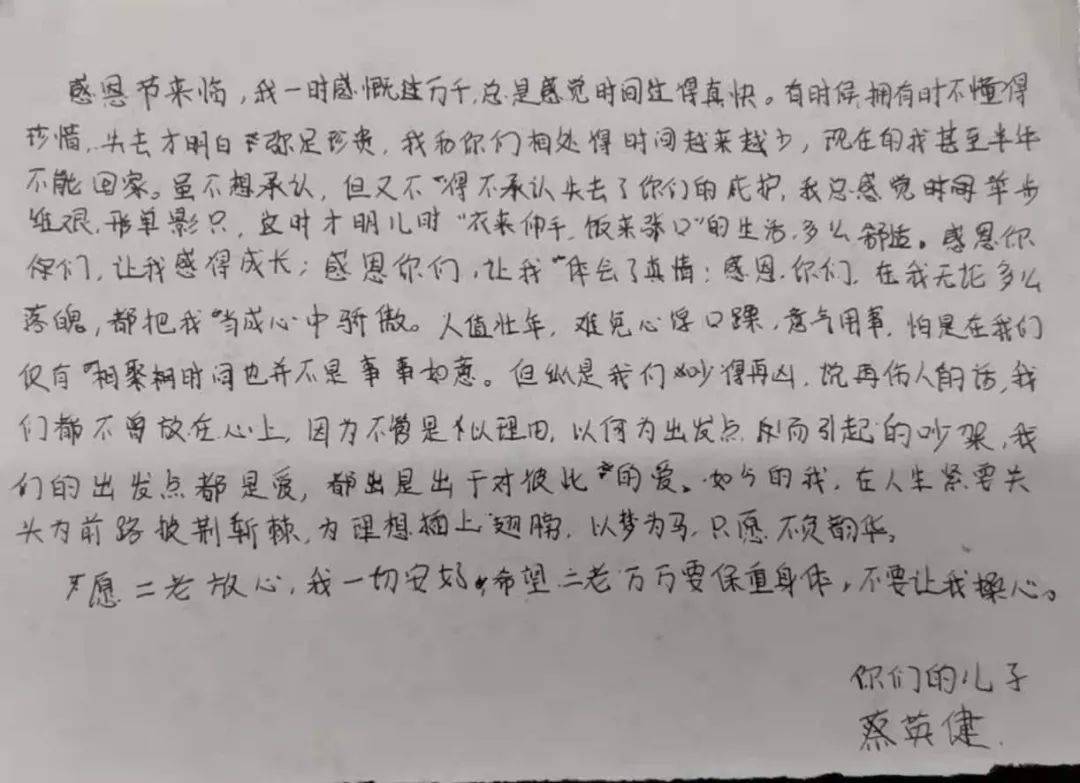 感恩节来临，我一时感慨过万千，总是感觉时间过得真快。有时候，拥有时不懂得
珍惜，失去才明白弥足珍贵，我和你们相处得时间越来越少，现在的我甚至半年
不能回家。虽不想承认，但又不得不承认失去了你们的庇护，我总感觉时间举步
维艰，形单影只，这时才明儿时“衣来伸手，饭来张口”的生活，多么舒适。感恩你
你们，让我感得成长；感恩你们，让我体会了真情；感恩，你们，在我无论多么
落魄，都把我当成心中骄傲。人值壮年，难免心浮口躁，意气用事，怕是在我们
仅有相聚时间也并不是事事如意。但纵是我们吵得再凶，说再伤人的话，我
们都不曾放在心上，因为不管是何理由，以何为出发点，从而引起的吵架，我
们的出发点都是爱，都出是出于对彼此的爱。如今的我，在人生紧要关
头为前路披荆斩棘，为理想插上翅膀，以梦为马，只愿不负韶华。
愿二老放心，我一切安好，希望二老万万要保重身体，不要让我操心。
你们的儿子
蔡英健